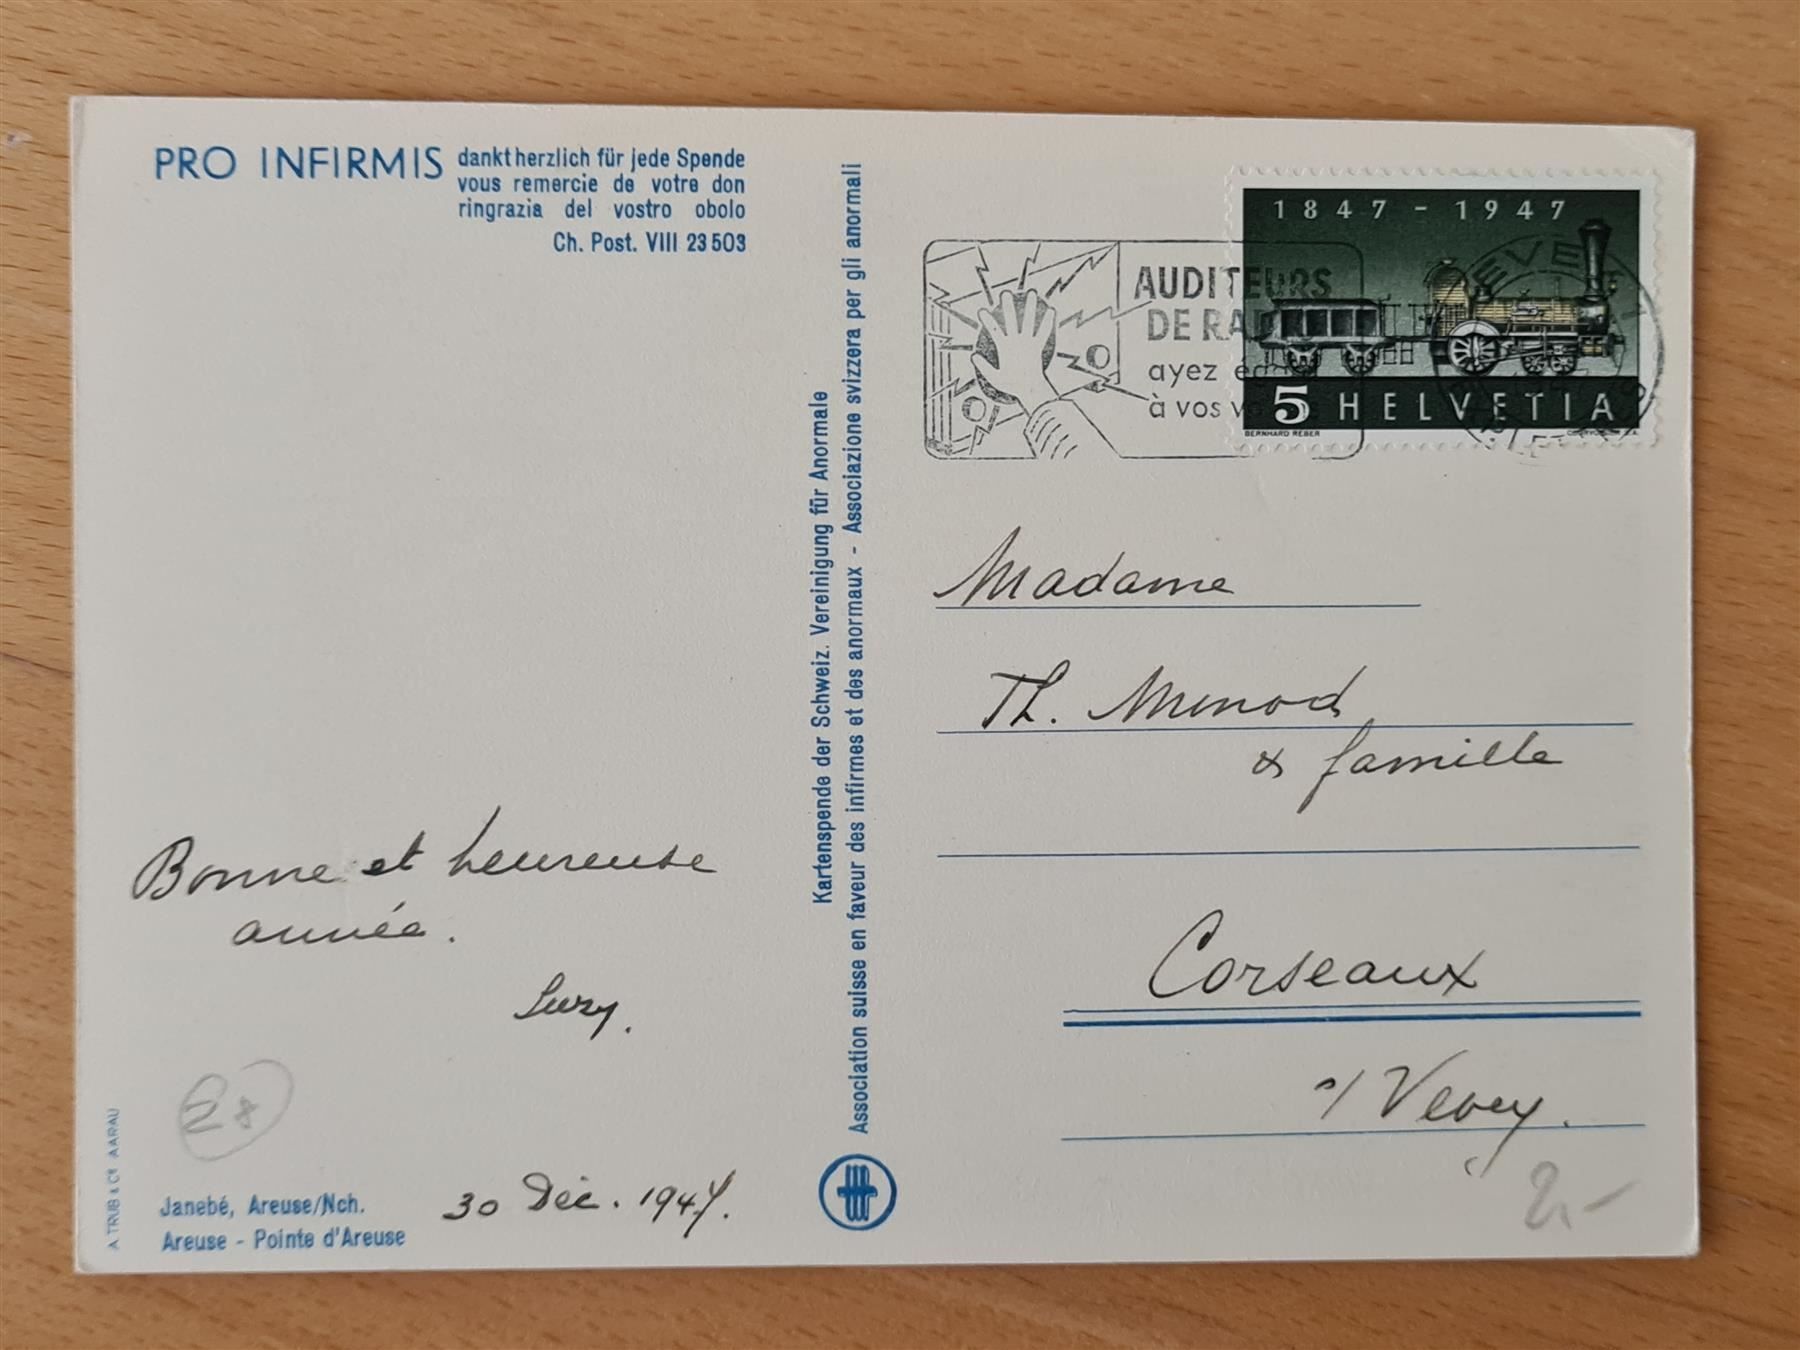 PRO INFIRMIS
dankt herzlich für jede Spende
vous remercie de votre don
ringrazia del vostro obolo
Ch. Post. VIII 23 503
Bonne et heureuse
année.
Suzy.
30 Déc. 1947.
Janebé, Areuse/Nch.
Areuse - Pointe d'Areuse
A TRÜB & Cie AARAU
Kartenspende der Schweiz. Vereinigung für Anormale
Association suisse en faveur des infirmes et des anormaux - Associazione svizzera per gli anormali
AUDITEURS
DE RADIO
ayez
à vos
VEVEY
1847 - 1947
5 HELVETIA
BERNHARD REBER
COURVOISIER S.A.
Madame
Th. Monod
& famille
Corseaux
s/ Vevey.
2.-